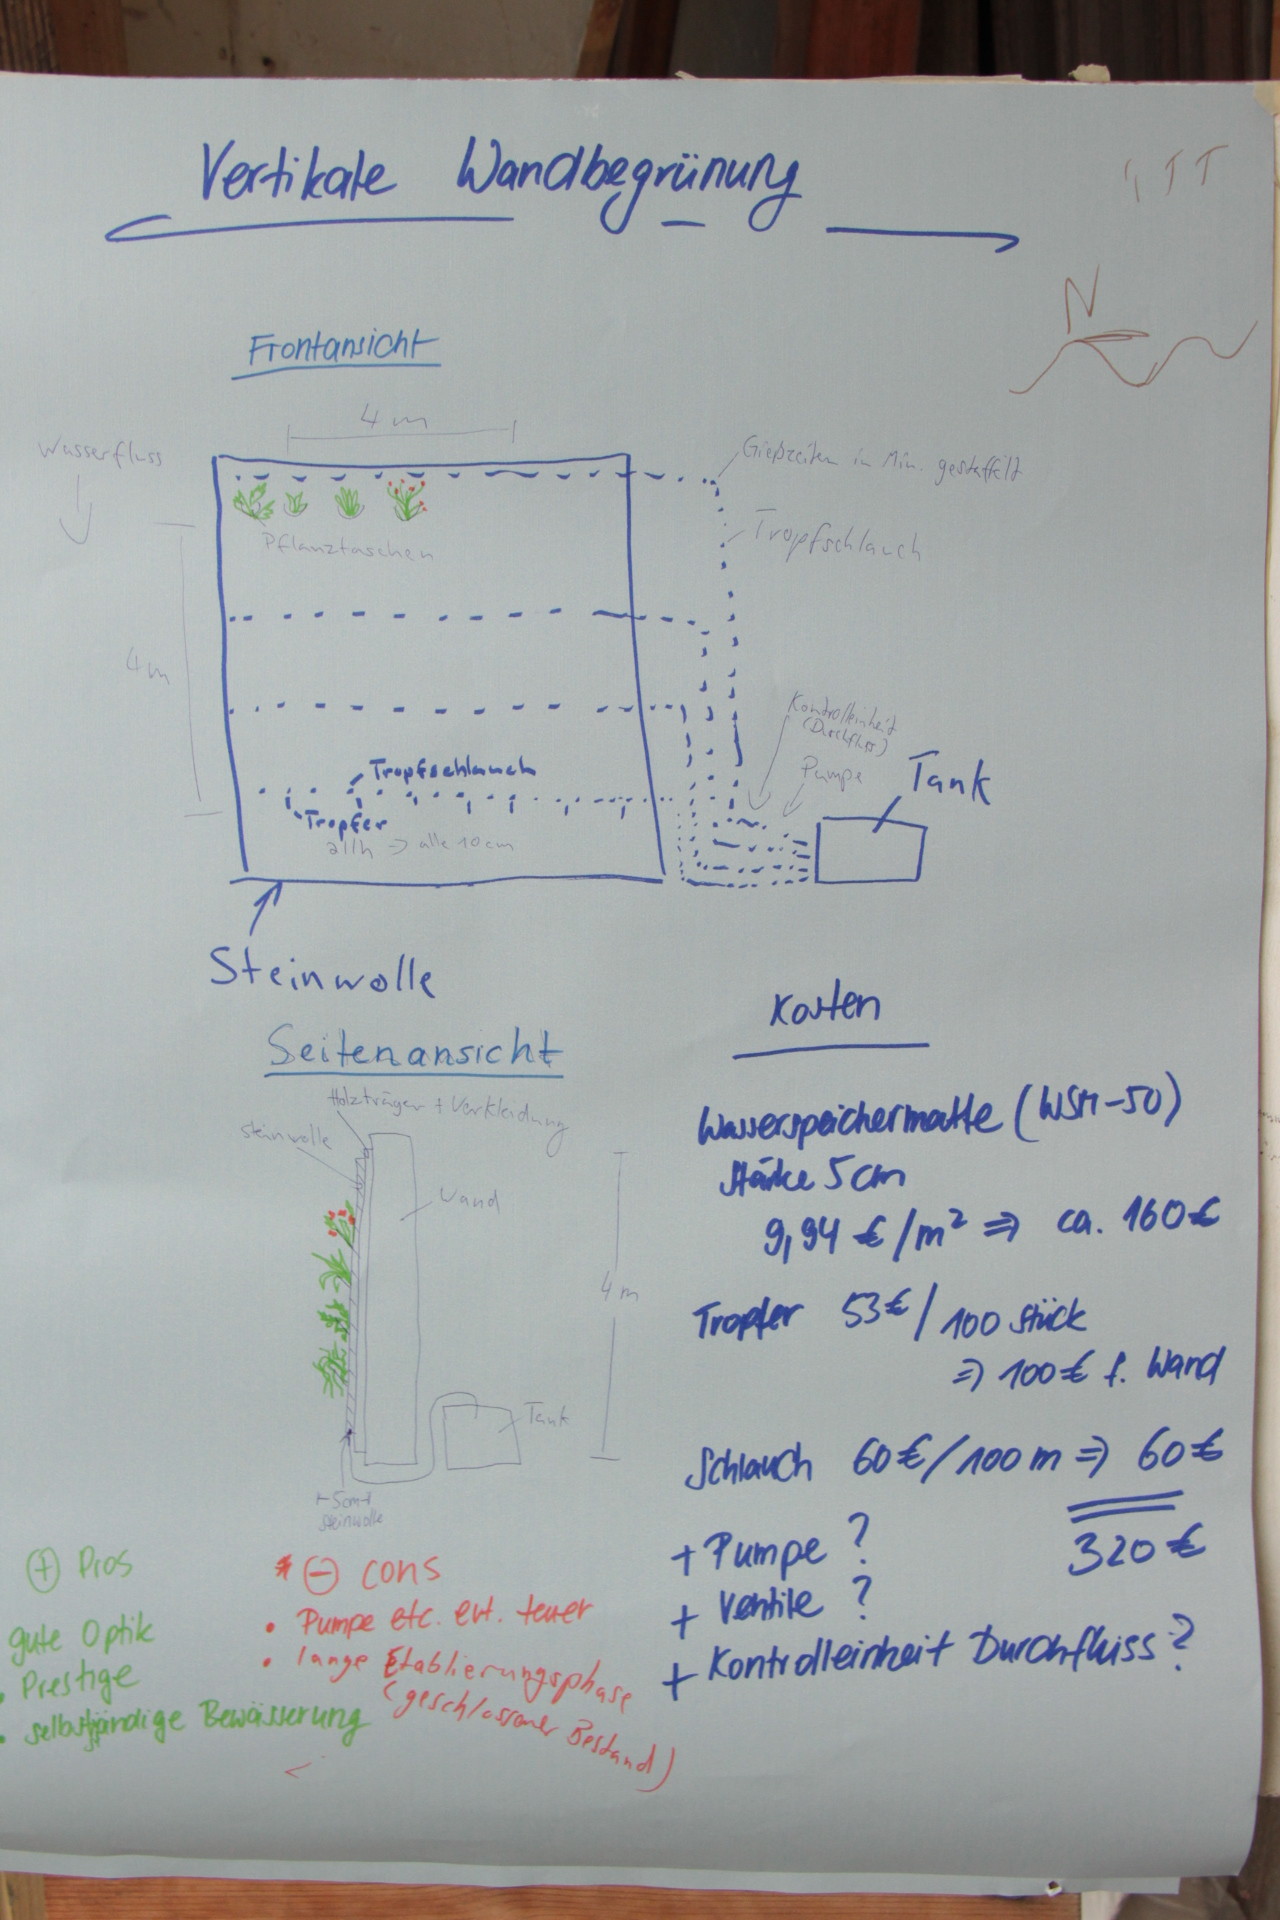 Vertikale Wandbegrünung
N
Frontansicht
4 m
Wasserfluss
Gießzeiten in Min. gestaffelt
Tropfschlauch
Pflanztaschen
4 m
Kontrolleinheit
(Durchfluss)
Pumpe
Tank
Tropfschlauch
Tropfer
2 l/h → alle 10 cm
Steinwolle
Seitenansicht
Holzträger + Verkleidung
Steinwolle
Wand
4 m
Tank
5cm
Steinwolle
Kosten
Wasserspeichermatte (WSM-50)
Stärke 5 cm
9,94 € / m² ⇒ ca. 160 €
Tropfer 53 € / 100 Stück
⇒ 100 € f. Wand
Schlauch 60 € / 100 m ⇒ 60 €
320 €
+ Pumpe ?
+ Ventile ?
+ Kontrolleinheit Durchfluss ?
⊕ Pros
gute Optik
• Prestige
• selbstständige Bewässerung
⊖ cons
• Pumpe etc. evt. teuer
• lange Etablierungsphase
(geschlossener Bestand)